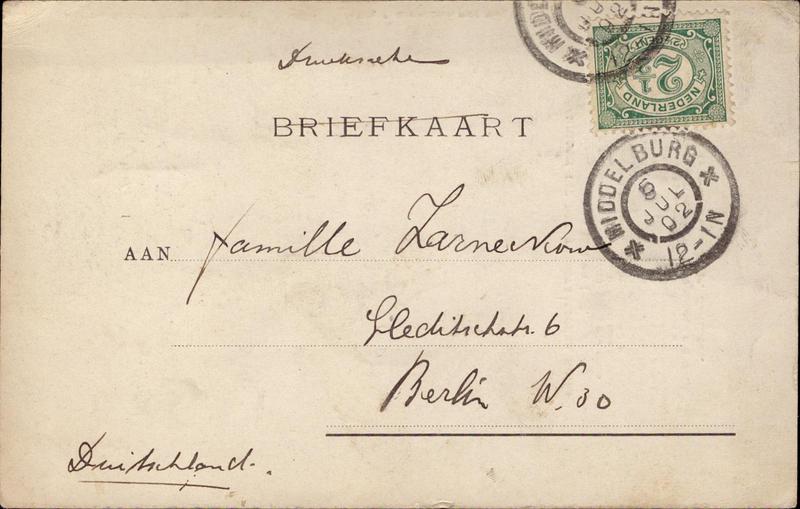 Drucksache
BRIEFKAART
NEDERLAND
2½
CENT
MIDDELBURG
6 JUL 02
12-1N
AAN Familie Zarneckow
Gleditschstr. 6
Berlin W. 30
Duitschland.